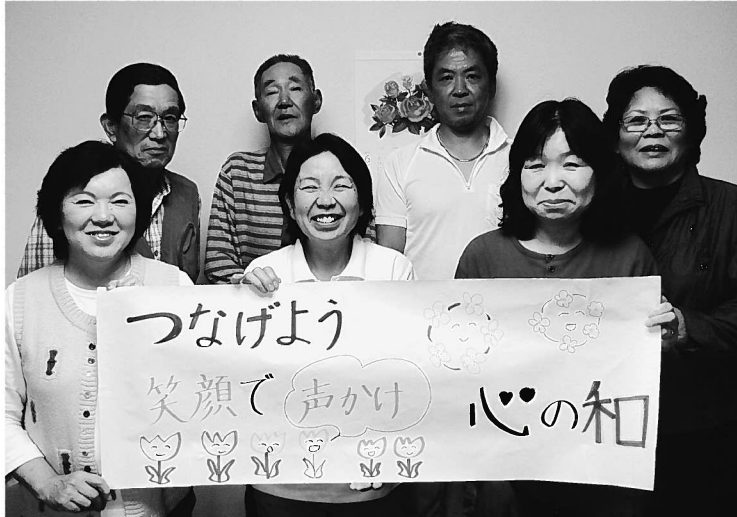 つなげよう
笑顔で 声かけ 心の和